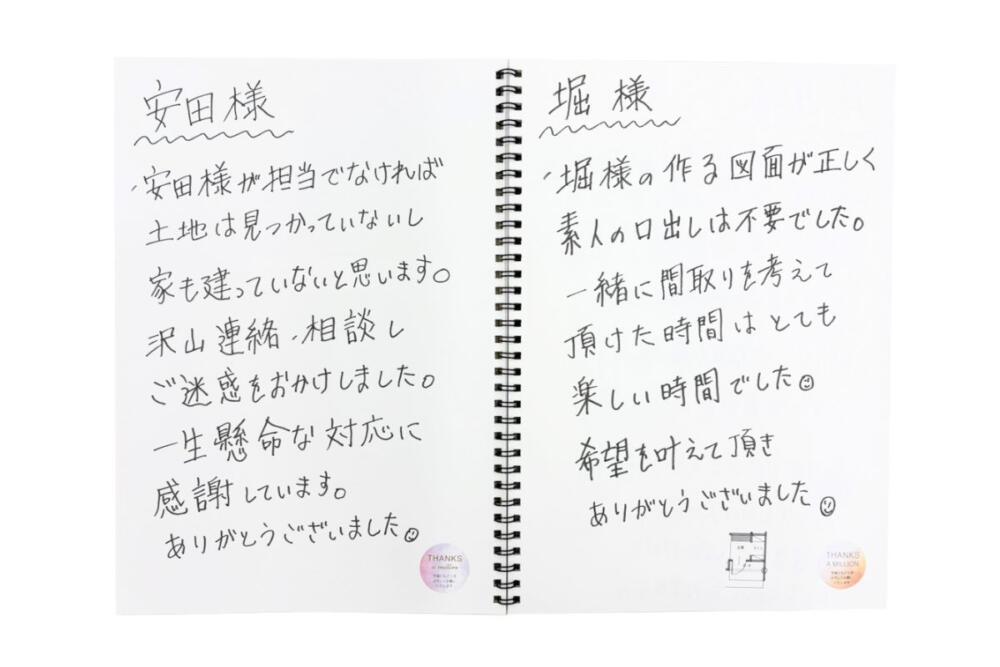 安田様
・安田様が担当でなければ
土地は見つかっていないし
家も建っていないと思います。
沢山連絡、相談し
ご迷惑をおかけしました。
一生懸命な対応に
感謝しています。
ありがとうございました
THANKS
a million
堀様
・堀様の作る図面が正しく
素人の口出しは不要でした。
一緒に間取りを考えて
頂けた時間はとても
楽しい時間でした
希望を叶えて頂き
ありがとうございました
THANKS
A MILLION